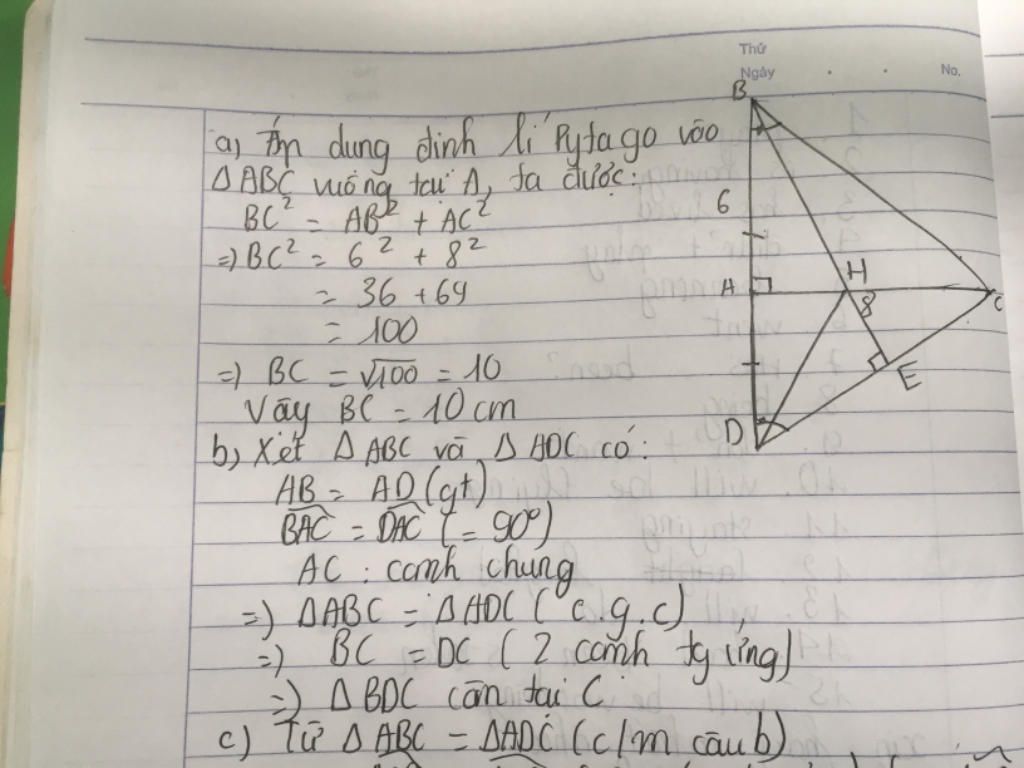 Thứ
Ngày . . No.
a) Áp dụng định lí Pytago vào
ΔABC vuông tại A, ta được:
BC² = AB² + AC²
=) BC² = 6² + 8²
= 36 + 64
= 100
=) BC = √100 = 10
Vậy BC = 10 cm
b) Xét ΔABC và ΔADC có:
AB = AD (gt)
BAC = DAC (= 90°)
AC : cạnh chung
=) ΔABC = ΔADC (c.g.c)
=) BC = DC (2 cạnh tg ứng)
=) ΔBDC cân tại C
c) Từ ΔABC = ΔADC (c/m câu b)
B
6
A
H
8
C
E
D